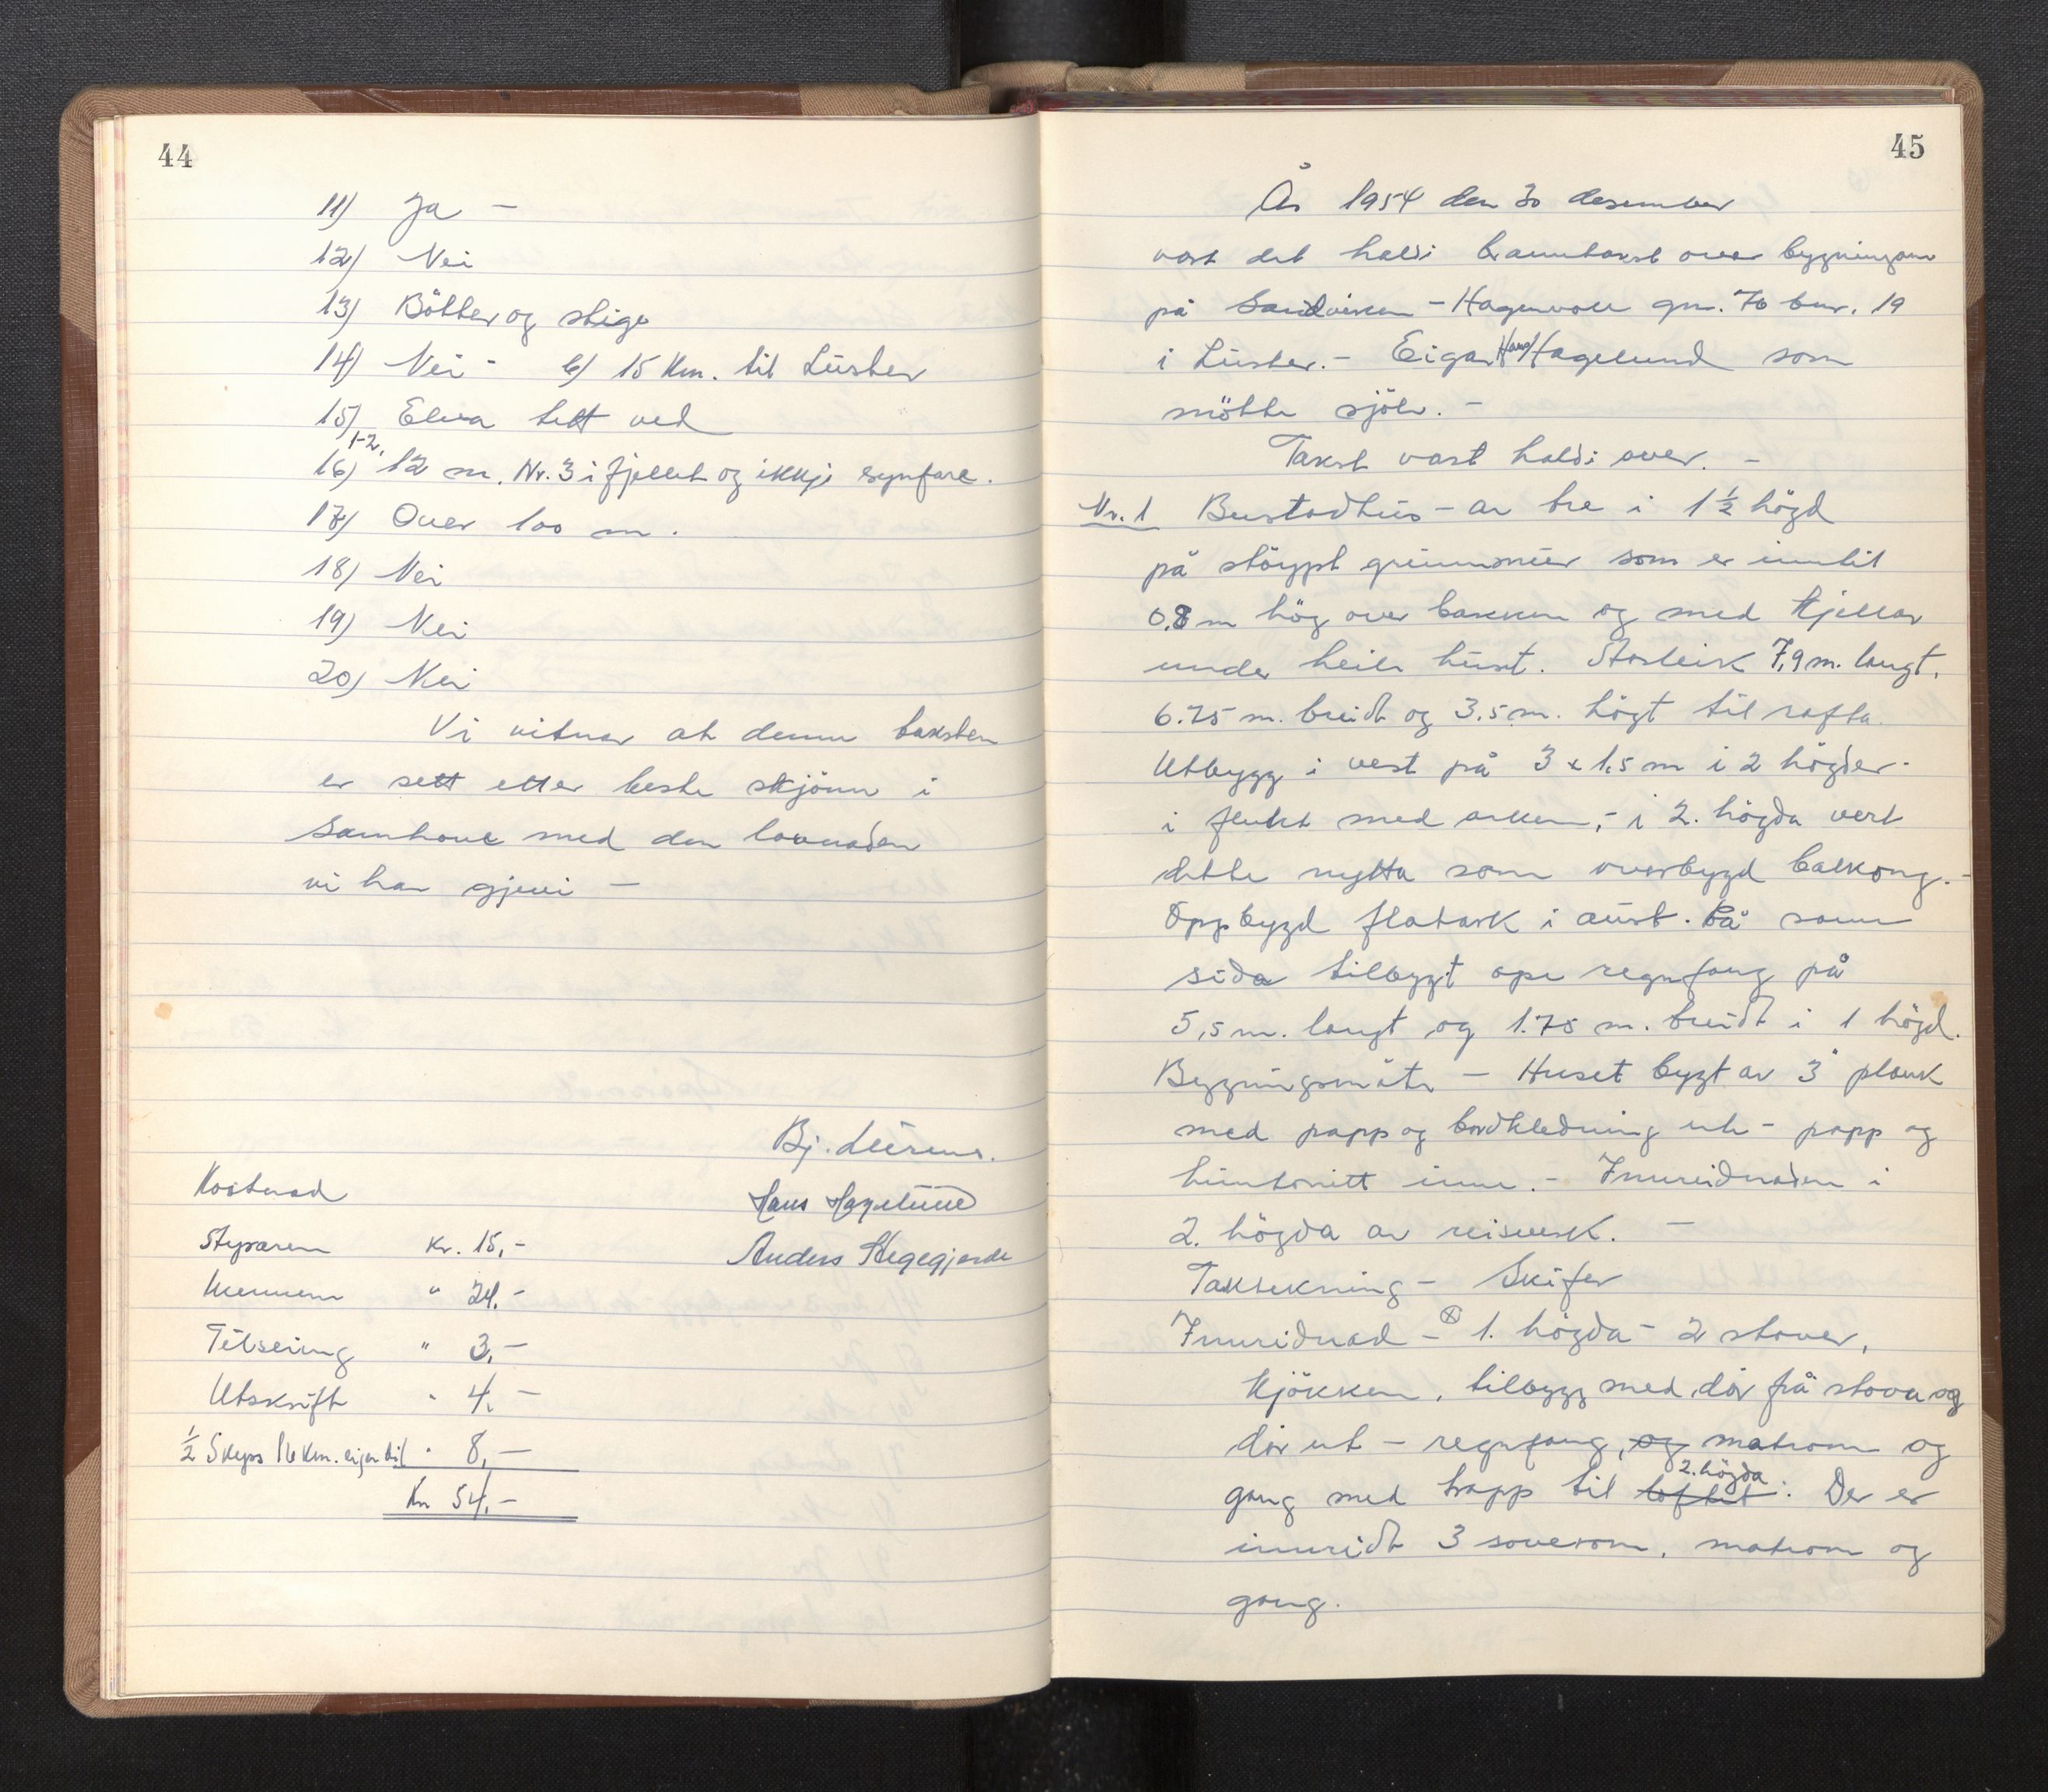 44
11) Ja -
12) Nei
13) Bötter og stige
14) Nei - b) 15 Km. til Luster
15) Elva tett ved
1-2,
16) 12 m. Nr. 3 i fjellet og ikkje synfare.
17) Over 100 m.
18) Nei
19) Nei
20) Nei
Vi vitnar at denne taksten
er sett etter beste skjönn i
samhove med den lovnaden
vi har gjevi -
Bj. Lürens.
Hans Hagelund
Anders Hegegjerde
Kostnad
Styraren Kr. 15,-
Mennene " 24,-
Tilseiing " 3,-
Utskrift " 4,-
1/2 Skyss 16 Km. eigen bil " 8,-
Kr 54,-
45
År 1954 den 30 desember
vart det haldi branntakst over bygningane
på Sandviken - Hagenvoll gnr. 76 bnr. 19
i Luster. - Eigar Hans Hagelund som
mötte sjölv. -
Takst vart haldi over. -
Nr. 1 Bustadhus - av tre i 1 1/2 högd
på stöypt grunnmur som er inntil
0.8 m hög over bakken og med kjellar
under heile huset. Storleik 7,9 m. langt,
6.75 m. breidt og 3.5 m. högt til rafta.
Utbygg i vest på 3 x 1.5 m i 2 högder.
i flukt med arken, - i 2. högda vert
dette nytta som overbygd balkong. -
Oppbygd flatark i aust. På same
sida tilbyggt ope regnfang på
5,5 m. langt og 1.75 m. breidt i 1 högd.
Bygningsmåte - Huset bygt av 3" plank
med papp og bordkledning ute - papp og
huntonitt inne. - Innreidnaden i
2. högda av reisverk. -
Taktekning - Skifer
Innreidnad - ⊗ 1. högda - 2 stover,
kjökken, tilbygg med dör frå stova og
dör ut - regnfang, og matrom og
2. högda
gang med trapp til loftet. Der er
innreidt 3 soverom, matrom og
gang.